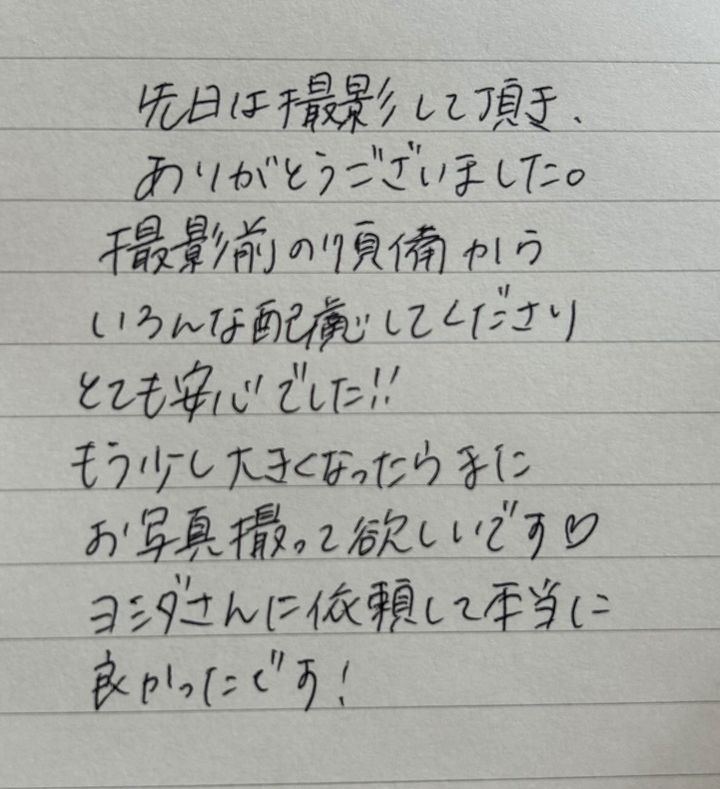 先日は撮影して頂き、
ありがとうございました。
撮影前の準備から
いろんな配慮してくださり
とても安心でした!!
もう少し大きくなったらまた
お写真撮って欲しいです♡
ヨシダさんに依頼して本当に
良かったです!